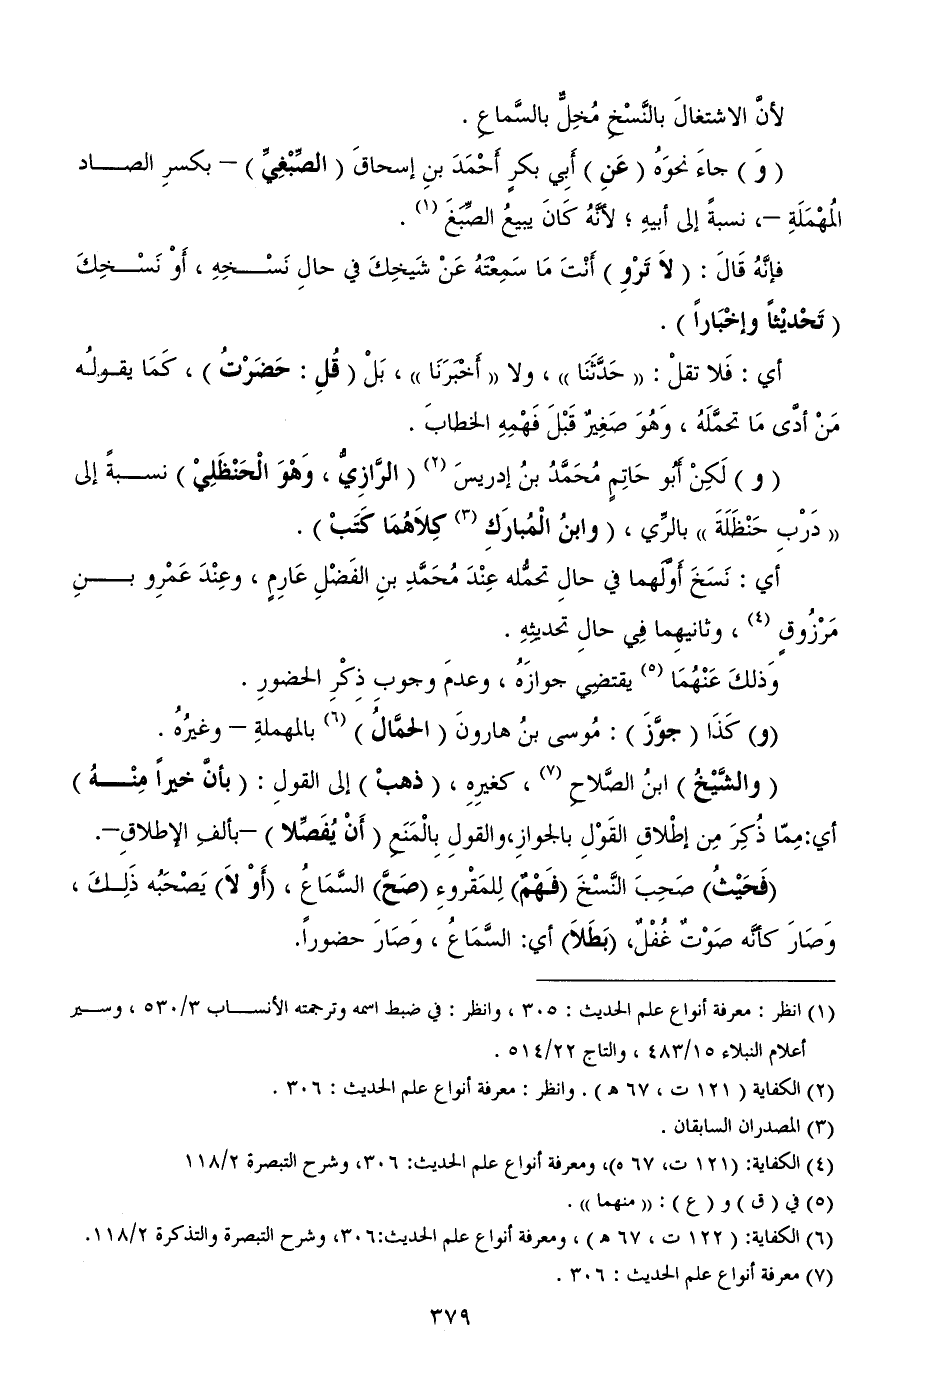 لأنَّ الاشتغالَ بالنَّسْخِ مُخِلٌّ بالسَّماعِ .
( وَ ) جاءَ نحوَهُ ( عَنِ ) أبي بكرٍ أحْمَدَ بنِ إسحاقَ ( الصِّبْغِيِّ ) – بكسرِ الصاد
المُهْمَلَةِ –، نسبةً إلى أبيهِ ؛ لأنَّهُ كَانَ يبيعُ الصِّبْغَ (١) .
فإنَّهُ قَالَ : ( لاَ تَرْوِ ) أنْتَ مَا سَمِعْتَهُ عَنْ شَيخِكَ في حالِ نَسْخِهِ ، أَوْ نَسْخِكَ
( تَحْديْثاً وإخْبَاراً ) .
أي : فَلا تقلْ : « حَدَّثَنَا » ، ولا « أَخْبَرَنَا » ، بَلْ ( قُلِ : حَضَرْتُ ) ، كَمَا يقولُه
مَنْ أدَّى مَا تحمَّلَهُ ، وَهُوَ صَغِيرٌ قَبْلَ فَهْمِهِ الخطابَ .
( و ) لَكِنْ أَبُو حَاتِمٍ مُحَمَّدُ بنُ إدريسَ (٢) ( الرَّازِيُّ ، وَهْوَ الْحَنْظَلِيْ ) نسبةً إلى
« دَرْبِ حَنْظَلَةَ » بالرِّي ، ( وابنُ الْمُبارَكِ (٣) كِلاَهُمَا كَتَبْ ) .
أي : نَسَخَ أوّلُهما في حالِ تحمُّله عِنْدَ مُحَمَّدِ بنِ الفَضْلِ عَارِمٍ ، وعِنْدَ عَمْرِو بنِ
مَرْزُوقٍ (٤) ، وثانيهما فِي حالِ تحديثِهِ .
وَذلكَ عَنْهُمَا (٥) يقتضِي جوازَهُ ، وعدمَ وجوبِ ذِكْرِ الحضورِ .
(و) كَذَا ( جوَّزَ ) : مُوسى بنُ هارونَ ( الحمَّالُ ) (٦) بالمهملةِ – وغيرُهُ .
( والشَّيْخُ ) ابنُ الصَّلاحِ (٧) ، كغيرِهِ ، ( ذهبْ ) إلى القولِ : ( بأنَّ خيراً مِنْهُ )
أي:مِمّا ذُكِرَ مِن إطْلاقِ القَوْلِ بالجوازِ،والقولِ بِالْمَنَعِ ( أَنْ يُفَصِّلا ) –بألفِ الإطلاقِ–.
(فَحَيْثُ) صَحِبَ النَّسْخَ (فَهْمٌ) لِلمَقْروءِ (صَحَّ) السَّمَاعُ ، (أَوْ لاَ) يَصْحَبُه ذَلِكَ ،
وَصَارَ كأنَّه صَوْتٌ غُفْلٌ، (بَطَلاَ) أي: السَّمَاعُ ، وَصَارَ حضوراً.
(١) انظر : معرفة أنواع علم الحديث : ٣٠٥ ، وانظر : في ضبط اسمه وترجمته الأنساب ٥٣٠/٣ ، وسير
أعلام النبلاء ٤٨٣/١٥ ، والتاج ٥١٤/٢٢ .
(٢) الكفاية ( ١٢١ ت ، ٦٧ ه ) . وانظر : معرفة أنواع علم الحديث : ٣٠٦ .
(٣) المصدران السابقان .
(٤) الكفاية: (١٢١ ت، ٦٧ ه)، ومعرفة أنواع علم الحديث: ٣٠٦، وشرح التبصرة ١١٨/٢
(٥) في ( ق ) و ( ع ) : « منهما » .
(٦) الكفاية: ( ١٢٢ ت ، ٦٧ ه ) ، ومعرفة أنواع علم الحديث:٣٠٦، وشرح التبصرة والتذكرة ١١٨/٢.
(٧) معرفة أنواع علم الحديث : ٣٠٦ .
٣٧٩